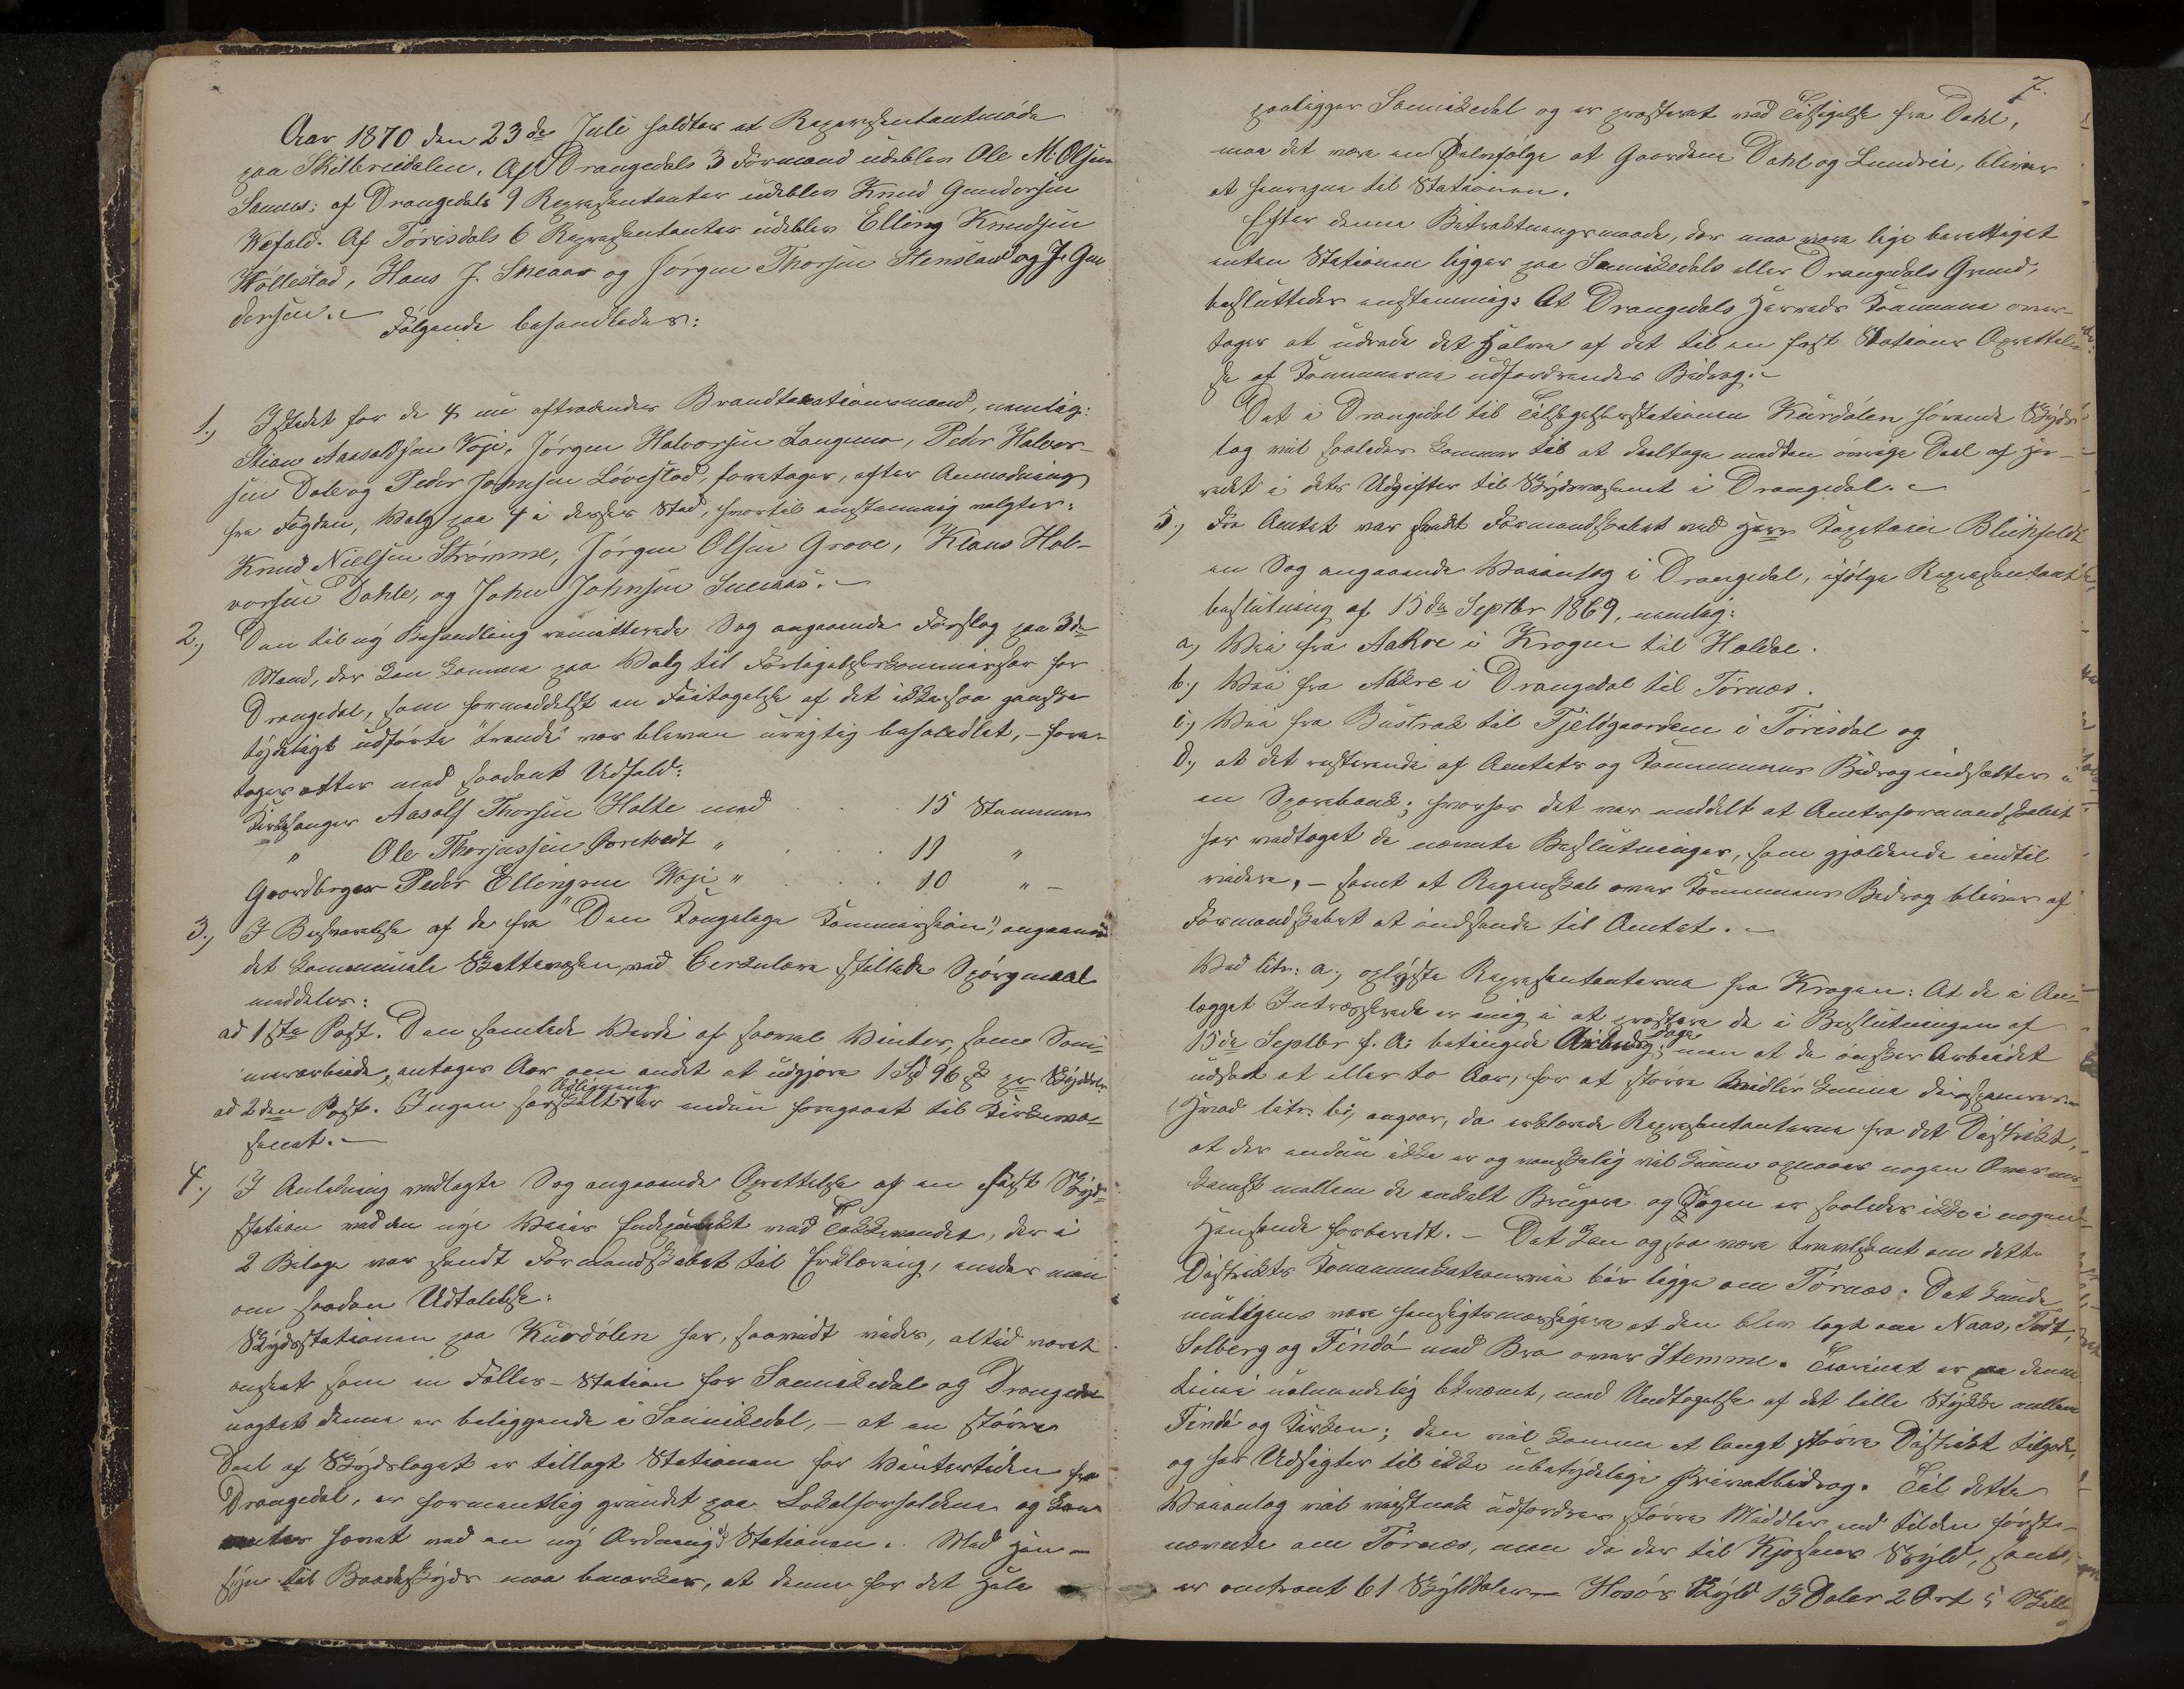 Aar 1870 den 23de Juli holdtes et Repræsentantmøde
paa Skilbredalen. Af Drangedals 3 Formænd udeblev Ole M. Olsen
Sannes; af Drangedals 9 Repræsentanter udeblev Knud Gundersen
Wefald. Af Tørisdals 6 Repræsentanter udeblev Elling Knudsen
Wøllestad, Hans J. Sneaas og Jørgen Thorsen Stenstad og J. Gun
dersen.
Følgende behandledes:
1., I Stedet for de 4 nu aftrædende Brandtaxationsmænd, nemlig:
Stian Aanoldsen Voje, Jørgen Halvorsen Langmo, Peder Halvor-
sen Dale og Peder Johnsen Løvestad, foretages, efter Anmodning
fra Fogden, Valg paa 4 i disses Sted, hvortil enstemmig valgtes:
Knud Nielsen Strømme, Jørgen Olsen Grave, Klaus Hal-
vorsen Dahle, og John Johnsen Sneaas.
2., Den til ny Behandling remitterede Sag angaaende Forslag paa 3de
Mænd, der kan komme paa Valg til Forligelseskommissær for
Drangedal, som formedelst en Feiltagelse af det ikke saa ganske
tydeligt udførte "trende" var bleven urigtig behandlet, - fore-
toges atter med saadant Udfald:
Kirkesanger Aasolf Thorsen Holte med . . . 15 Stemmer
" Ole Thorjussen Gorekvedt " . . . 11 "
Gaardbruger Peder Ellingsen Weje " . . . 10 " -
3., I Besvarelse af de fra "Den Kongelige Kommission", angaaende
det kommunale Skattevæsen, ved Cirkulære stillede Spørgmaal
meddeles:
ad 1ste Post. Den samlede Værdi af saavel Vinter, som Som-
merarbeide, antages Aar om andet at udgjøre 1 Spd 96 ß pr Skylddlr.
ad 2den Post. Ingen særskilt Udligning er endnu foregaaet til Kirkevæ-
senet.
4., I Anledning vedlagte Sag angaaende Oprettelse af en fast Skyds-
station ved den nye Veies Endepunkt ved Tokkevandet, der i
2 Bilage var sendt Formandskabet til Erklæring, enedes man
om saadan Udtalelse:
Skydsstationen paa Kurdølen har, saavidt vides, altid været
anseet som en Fælles-Station for Sannikedal og Drangedal
uagtet denne er beliggende i Sannikedal, - at en større
Deel af Skydslaget er tillagt Stationen for Vintertiden fra
Drangedal, er formentlig grundet paa Lokalforholdene og kan
hævet ved en ny Ordning af Stationen. Med Hen-
syn til Baadskyds maa bemærkes, at denne for det Hele
7.
paaligger Sannikedal og er præsteret ved Tilsigelse fra Dahl,
maa det være en Selvfølge at Gaardene Dahl og Lundrei, bliver
at henregne til Stationen.
Efter denne Betragtningsmaade, der maa være lige berettiget
enten Stationen ligger paa Sannikedals eller Drangedals Grund,
besluttedes enstemmig: At Drangedals Herreds Kommune over-
tager at udrede det Halve af det til en fast Stations Oprettel-
se af Kommunerne udfordrende Bidrag.
Det i Drangedal til Tilsigelsesstationen Kurdølen hørende Skyds-
lag vil saaledes komme til at deeltage med den øvrige Deel af Her-
redet i dets Udgifter til Skydsvæsenet i Drangedal.
5., Fra Amtet var sendt Formandskabet ved Herr Kaptain Blichfeldt
en Sag angaaende Veianlæg i Drangedal, ifølge Repræsentant-
beslutning af 15de Septbr 1869, nemlig:
a, Vei fra Aakre i Krogen til Holdal.
b., Vei fra Aakre i Drangedal til Tørnæs.
c., Vei fra Bustrak til Fjeldgaardene i Tørisdal og
d., at det resterende af Amtets og Kommunens Bidrag indsættes i
en Sparebank; hvorhos det var meddelt at Amtsformandskabet
har vedtaget de nævnte Beslutninger, som gjældende indtil
videre, - samt at Regnskab over Kommunens Bidrag bliver af
Formandskabet at indsende til Amtet.
Ved litr: a., oplyste Repræsentanterne fra Krogen: At de i An-
lægget Interesserede er enig i at præstere de i Beslutningen af
15de Septbr f. A. betingede Arbeidsdage, men at de ønsker Arbeidet
udsat et eller to Aar, for at større Midler kunne disponeres.
Hvad litr: b., angaar, da erklærede Repræsentanterne fra det Distrikt,
at der endnu ikke er og vanskelig vil kunne opnaaes nogen Overens-
komst mellem de enkelt Brugere og Sagen er saaledes ikke i nogen
Henseende forberedt. - Det kan ogsaa være tvivlsomt om dette
Distrikts Kommunikationsvei bør ligge om Tørnæs. Det kunde
muligens være hensigtsmæssigere at den blev lagt om Naas, Tveit,
Solberg og Findø med Bro over Stemme. Terrænet er paa denne
Linie ualmindelig bekvemt, med Undtagelse af det lille Stykke mellem
Findø og Kirken; den vil komme et langt større Distrikt tilgode,
og har Udsigter til ikke ubetydelige Privatbidrag. Til dette
Veianlæg vil vistnok udfordres større Midler end til den først-
nævnte om Tørnæs, men da der til Kjøsens Skyld, som
er omtrent 61 Skylddaler - Hosøs Skyld 13 Daler 2 Ort 5 Skill